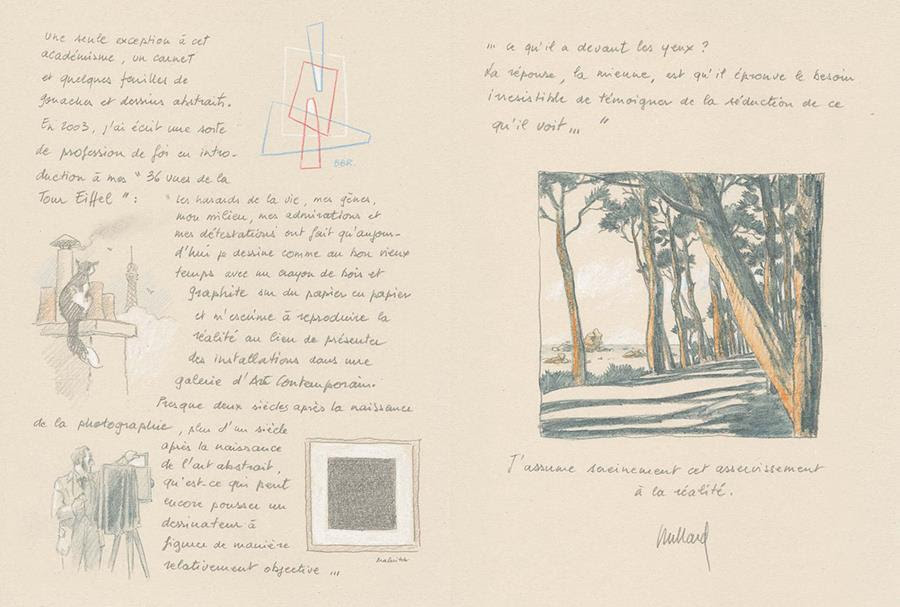 Une seule exception à cet
académisme, un carnet
et quelques feuilles de
gouaches et dessins abstraits.
En 2003, j'ai écrit une sorte
de profession de foi en intro-
duction à mes " 36 vues de la
Tour Eiffel " :
" les hasards de la vie, mes gènes,
mon milieu, mes admirations et
mes détestations ont fait qu'aujour-
d'hui je dessine comme au bon vieux
temps avec un crayon de bois et
graphite sur du papier en papier
et m'escrime à reproduire la
réalité au lieu de présenter
des installations dans une
galerie d'Art Contemporain.
Presque deux siècles après la naissance
de la photographie, plus d'un siècle
après la naissance
de l'art abstrait,
qu'est-ce qui peut
encore pousser un
dessinateur à
figurer de manière
relativement objective ...
BBR.
Malevitch
... ce qu'il a devant les yeux ?
La réponse, la mienne, est qu'il éprouve le besoin
irrésistible de témoigner de la séduction de ce
qu'il voit ... "
J'assume sereinement cet asservissement
à la réalité.